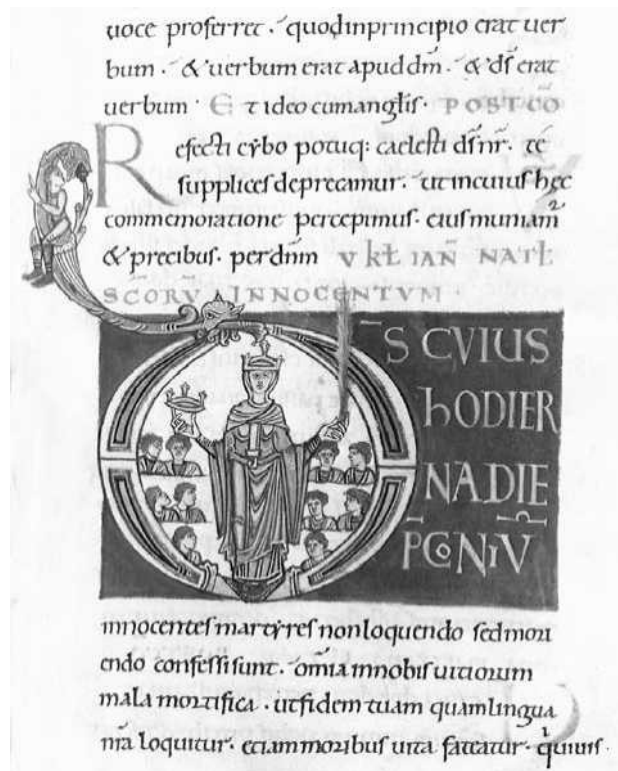 uoce proferret . quod in principio erat uer
bum . & uerbum erat apud dm̄ . & ds̄ erat
uerbum · Et ideo cum anglis · POST CO
Refecti cybo potuq: caelesti ds̄ nr̄ . te
supplices deprecamur . ut in cuius hęc
commemoratione percepimus . eius muniam²
& precibus . per dnm̄ V KL̄ IAN̄ NATL̄
SCORV̄ INNOCENTVM ·
D̄S CVIUS
hODIER
NA DIE
P̄CONIV̄
innocentes martyres non loquendo sed mori
endo confessi sunt . om̄ia in nobis uitiorum
mala mortifica . ut fidem tuam quam lingua
nr̄a loquitur . etiam moribus uita fateatur . qui uiuis ·